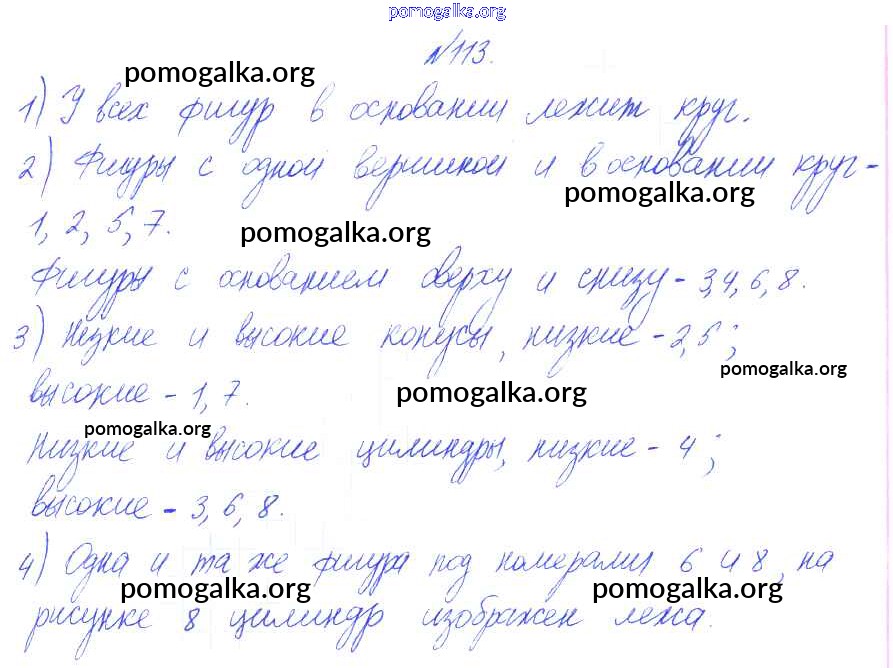 pomogalka.org
№113.
pomogalka.org
1) У всех фигур в основании лежит круг.
2) Фигуры с одной вершиной и в основании круг -
pomogalka.org
1, 2, 5, 7.
pomogalka.org
Фигуры с основанием сверху и снизу - 3,4, 6, 8.
3) Низкие и высокие конусы, низкие - 2,5;
pomogalka.org
высокие - 1, 7.
pomogalka.org
pomogalka.org
Низкие и высокие цилиндры, низкие - 4;
высокие - 3, 6, 8.
4) Одна и та же фигура под номерами 6 и 8, на
pomogalka.org pomogalka.org
рисунке 8 цилиндр изображен лежа.